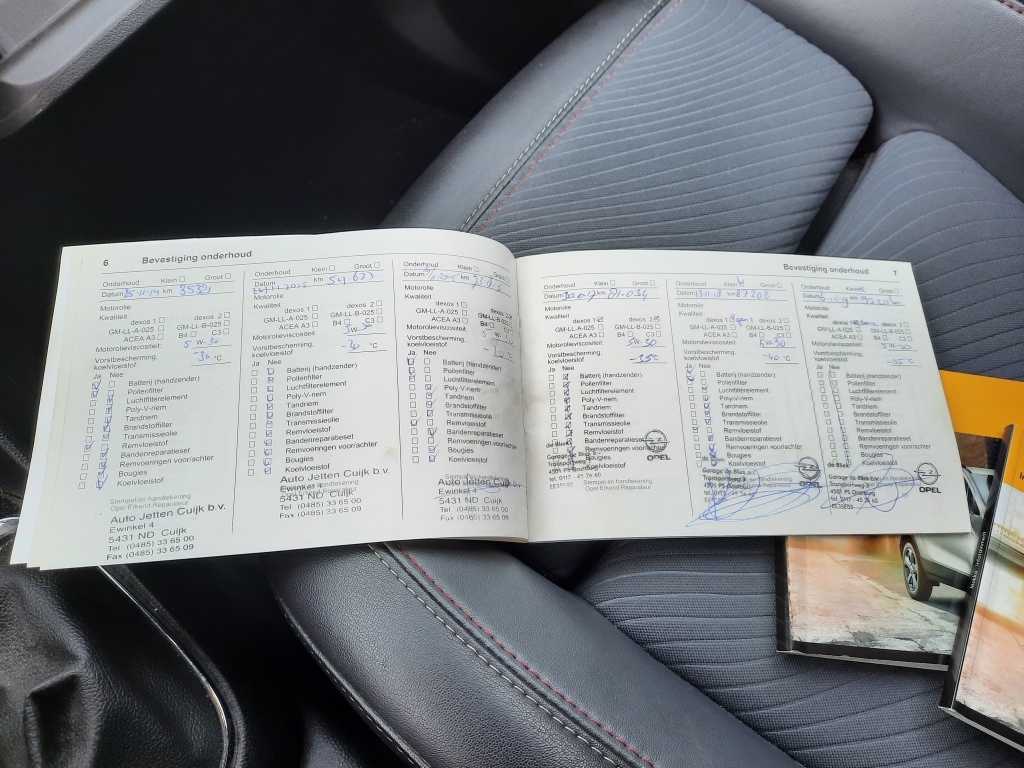 6 Bevestiging onderhoud
Onderhoud Klein ☐ Groot ☐
Datum 25-11-14 km
Motorolie
Kwaliteit:
dexos 1 ☐ dexos 2 ☐
GM-LL-A-025 ☐ GM-LL-B-025 ☐
ACEA A3 ☐ B4 ☐ C3 ☐
Motorolieviscositeit: 5 W-30
Vorstbescherming,
koelvloeistof -36 °C
Ja Nee
Batterij (handzender)
Pollenfilter
Luchtfilterelement
Poly-V-riem
Tandriem
Brandstoffilter
Transmissieolie
Remvloeistof
Bandenreparatieset
Remvoeringen voor/achter
Bougies
Koelvloeistof
Stempel en handtekening
Opel Erkend Reparateur
Auto Jetten Cuijk b.v.
Ewinkel 4
5431 ND Cuijk
Tel. (0485) 33 65 00
Fax (0485) 33 65 09
Onderhoud Klein ☐ Groot ☐
Datum 2015 km 54 623
Motorolie
Kwaliteit:
dexos 1 ☐ dexos 2 ☐
GM-LL-A-025 ☐ GM-LL-B-025 ☐
ACEA A3 ☐ B4 ☐ C3 ☐
Motorolieviscositeit: 5W-30
Vorstbescherming,
koelvloeistof °C
Ja Nee
Batterij (handzender)
Pollenfilter
Luchtfilterelement
Poly-V-riem
Tandriem
Brandstoffilter
Transmissieolie
Remvloeistof
Bandenreparatieset
Remvoeringen voor/achter
Bougies
Koelvloeistof
Auto Jetten Cuijk b.v.
Ewinkel 4
5431 ND Cuijk
Tel. (0485) 33 65 00
Fax (0485) 33 65 09
Onderhoud Klein ☐ Groot ☐
Datum km
Motorolie
Kwaliteit
dexos 1 ☐ dexos 2
GM-LL-A-025 ☐ GM-LL-B-025 ☐
ACEA A3 ☐ B4 C3 ☐
Motorolieviscositeit: 5 W 30
Vorstbescherming,
koelvloeistof °C
Ja Nee
Batterij (handzender)
Pollenfilter
Luchtfilterelement
Poly-V-riem
Tandriem
Brandstoffilter
Transmissieolie
Remvloeistof
Bandenreparatieset
Remvoeringen voor/achter
Bougies
Koelvloeistof
Auto Jetten Cuijk b.v.
Ewinkel 4
5431 ND Cuijk
Tel. (0485) 33 65 00
Fax (0485) 33 65 09
Bevestiging onderhoud 7
Onderhoud Klein ☐ Groot ☐
Datum km 81.034
Motorolie
Kwaliteit
dexos 1 dexos 2
GM-LL-A-025 ☐ GM-LL-B-025 ☐
ACEA A3 ☐ B4 ☐ C3 ☐
Motorolieviscositeit: 5W-30
Vorstbescherming,
koelvloeistof -35°C
Ja Nee
Batterij (handzender)
Pollenfilter
Luchtfilterelement
Poly-V-riem
Tandriem
Brandstoffilter
Transmissieolie
Remvloeistof
Bandenreparatieset
Remvoeringen voor/achter
Bougies
Koelvloeistof
Stempel en handtekening
Opel Erkend Reparateur
de Bliek
Garage de Bliek b.v.
Transportweg 3
4501 PS Oostburg
tel. 0117 - 45 26 60
OPEL
Onderhoud Klein Groot ☐
Datum km 87208
Motorolie
Kwaliteit
dexos 1 gen 2 dexos 2 ☐
GM-LL-A-025 ☐ GM-LL-B-025 ☐
ACEA A3 ☐ B4 ☐ C3 ☐
Motorolieviscositeit: 5W-30
Vorstbescherming,
koelvloeistof -40 °C
Ja Nee
Batterij (handzender)
Pollenfilter
Luchtfilterelement
Poly-V-riem
Tandriem
Brandstoffilter
Transmissieolie
Remvloeistof
Bandenreparatieset
Remvoeringen voor/achter
Bougies
Koelvloeistof
de Bliek
Garage de Bliek b.v.
Transportweg 3
4501 PS Oostburg
tel. 0117 - 45 26 60
OPEL
Onderhoud Klein Groot ☐
Datum km
Motorolie
Kwaliteit
dexos 1 dexos 2 ☐
GM-LL-A-025 ☐ GM-LL-B-025 ☐
ACEA A3 ☐ B4 ☐ C3 ☐
Motorolieviscositeit: 5W-30
Vorstbescherming,
koelvloeistof °C
Ja Nee
Batterij (handzender)
Pollenfilter
Luchtfilterelement
Poly-V-riem
Tandriem
Brandstoffilter
Transmissieolie
Remvloeistof
Bandenreparatieset
Remvoeringen voor/achter
Bougies
Koelvloeistof
de Bliek
Garage de Bliek b.v.
Transportweg 3
4501 PS Oostburg
tel. 0117 - 45 26 60
OPEL